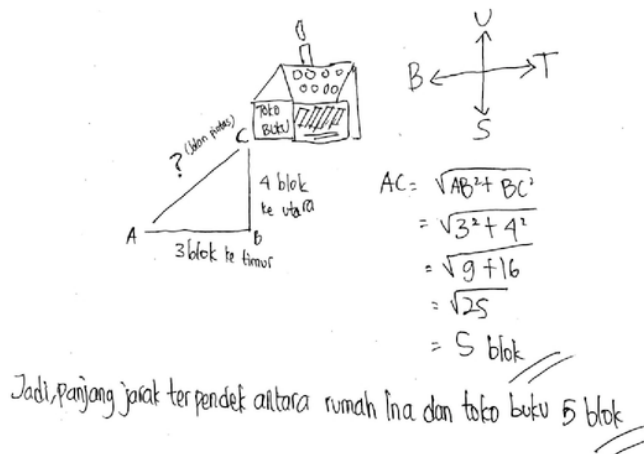 U
B T
S
Toko
Buku
C
? (Jalan pintas)
4 blok
ke utara
A
B
3 blok ke timur
AC = √AB² + BC²
= √3² + 4²
= √9 + 16
= √25
= 5 blok
Jadi, panjang jarak terpendek antara rumah Ina dan toko buku 5 blok